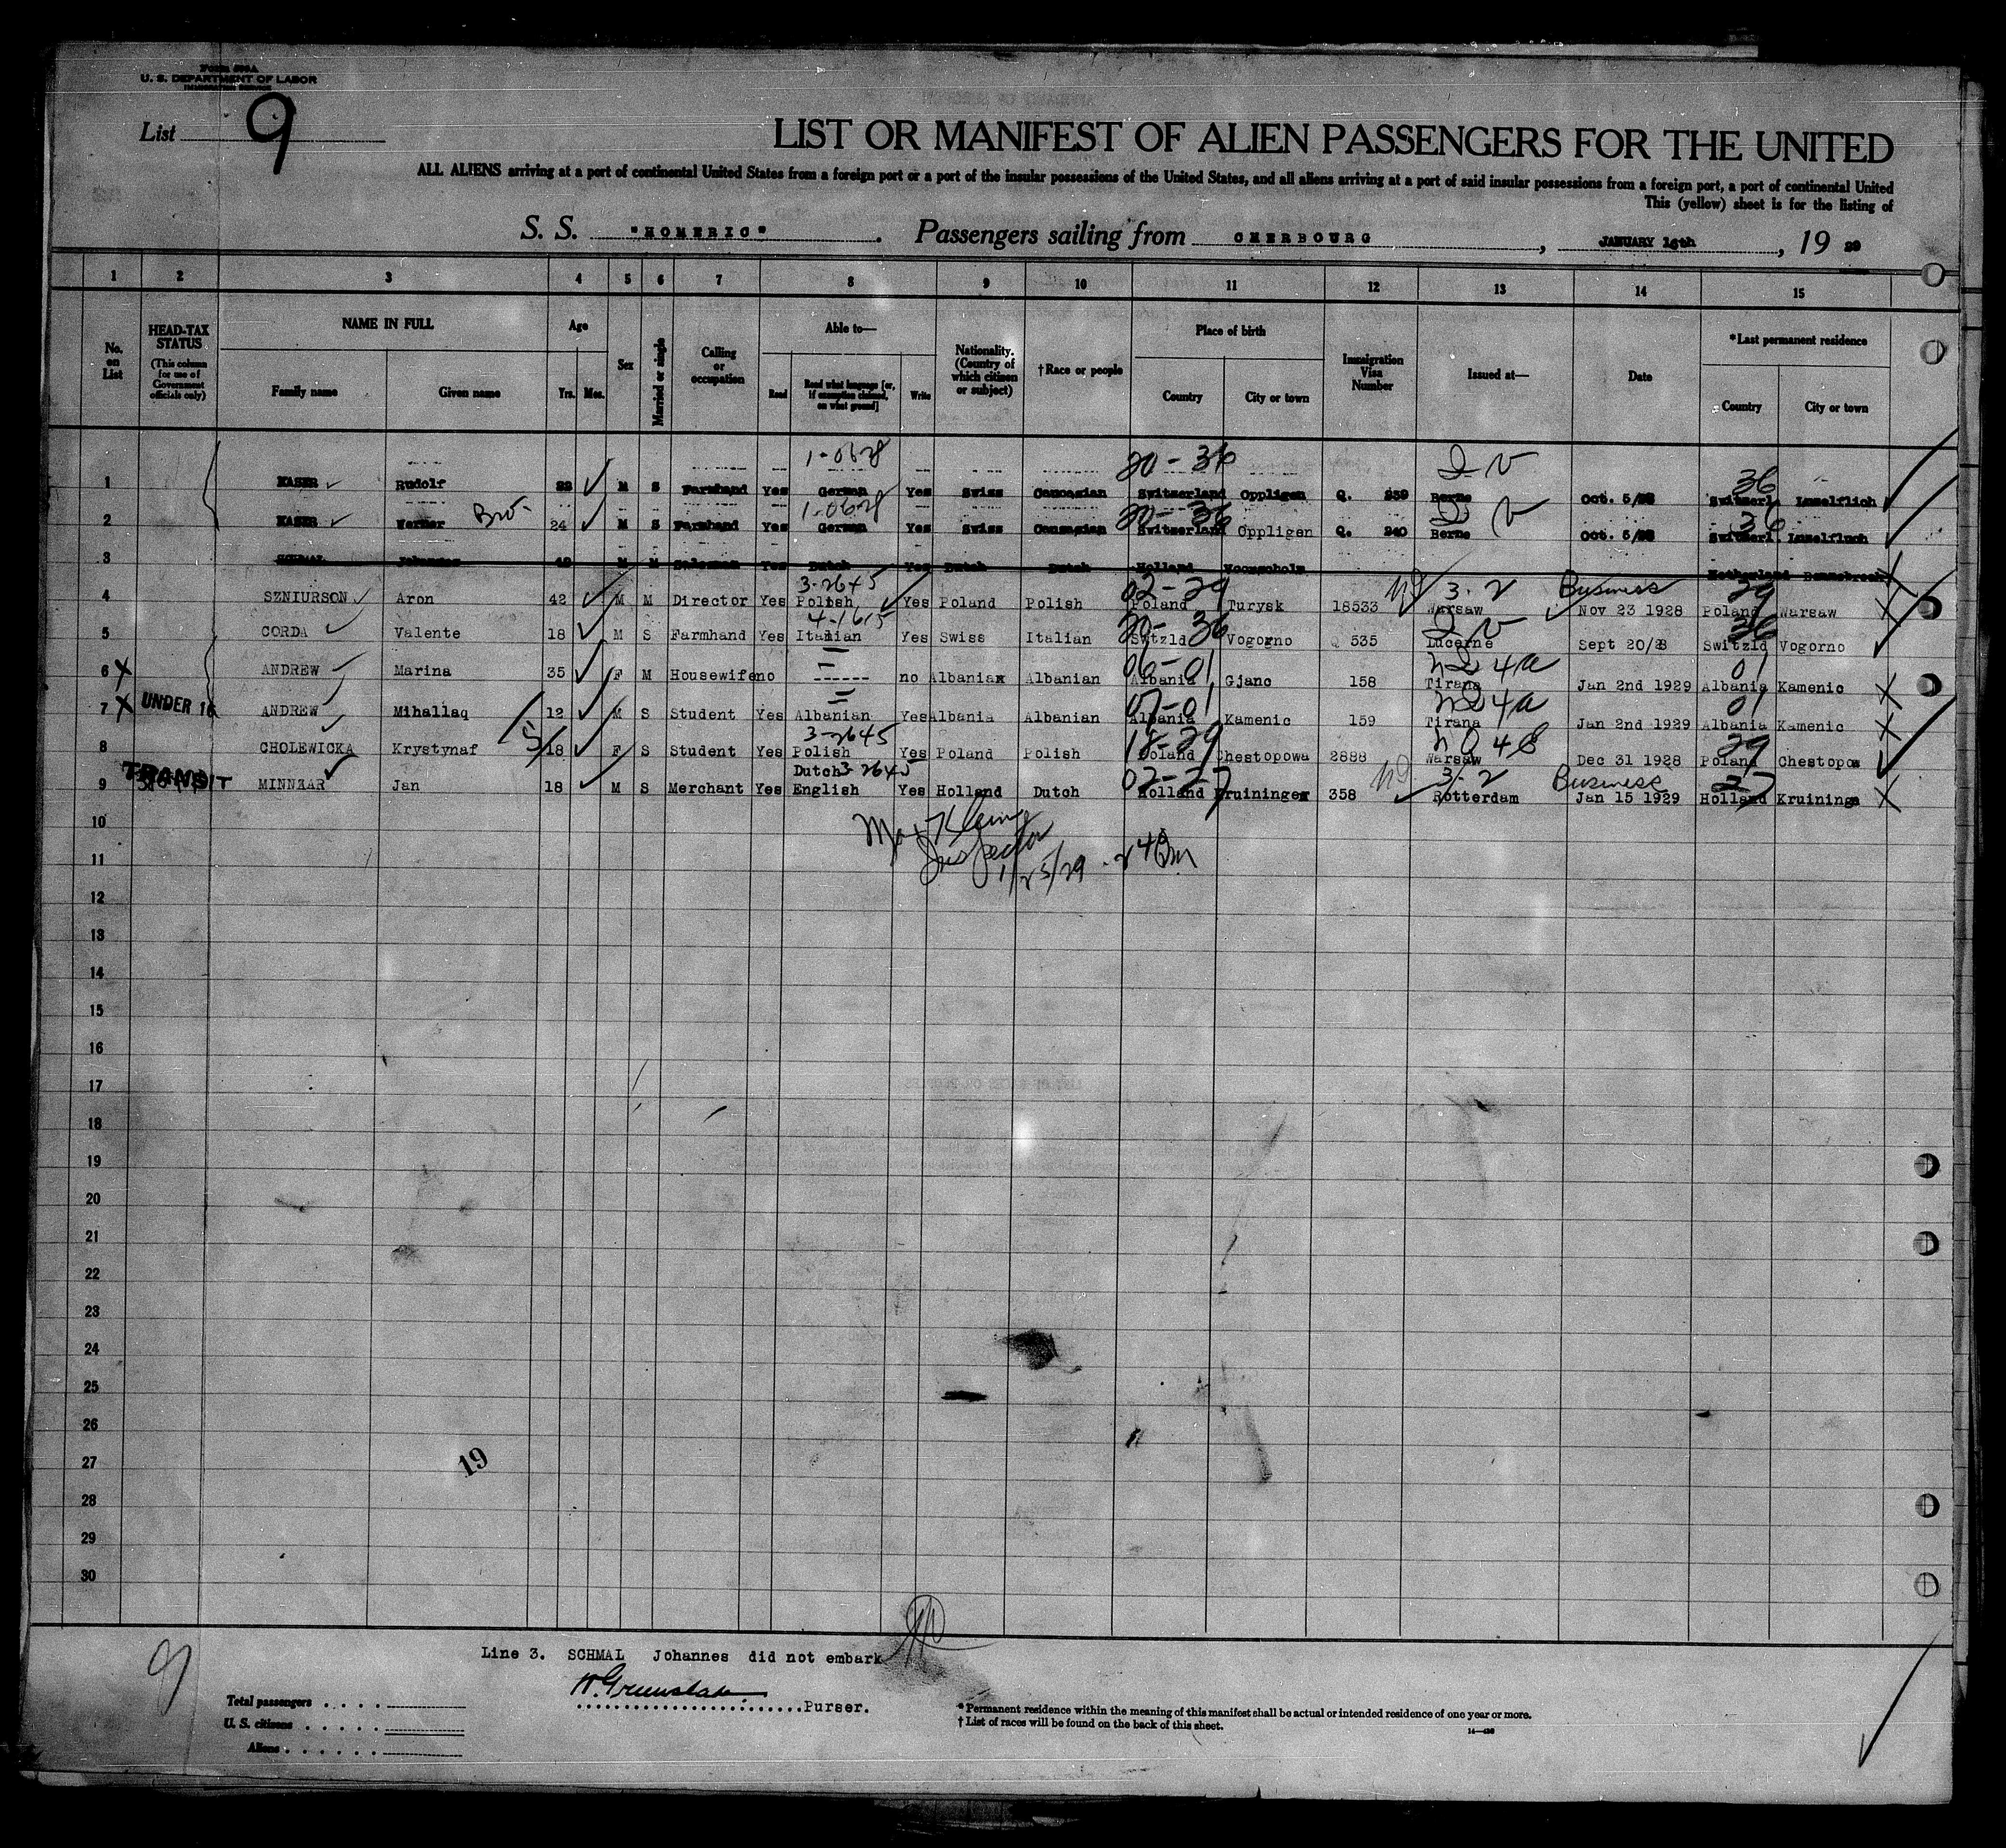 Form 500A
U. S. DEPARTMENT OF LABOR
IMMIGRATION SERVICE
List 9
LIST OR MANIFEST OF ALIEN PASSENGERS FOR THE UNITED
ALL ALIENS arriving at a port of continental United States from a foreign port or a port of the insular possessions of the United States, and all aliens arriving at a port of said insular possessions from a foreign port, a port of continental United
This (yellow) sheet is for the listing of
S. S. "HOMERIC". Passengers sailing from CHERBOURG, JANUARY 16th, 19 29
1 2 3 4 5 6 7 8 9 10 11 12 13 14 15
No. on List
HEAD-TAX STATUS (This column for use of Government officials only)
NAME IN FULL Family name Given name
Age Yrs. Mos.
Sex
Married or single
Calling or occupation
Able to— Read Read what language [or, if exemption claimed, on what ground] Write
Nationality. (Country of which citizen or subject)
†Race or people
Place of birth Country City or town
Immigration Visa Number
Issued at—
Date
*Last permanent residence Country City or town
1-0628 20-36 36
1 KASER Rudolf M S Farmhand Yes German Yes Swiss Caucasian Switzerland Oppligen Q. 239 Berne Oct. 5/28 Switzerl
Bro. 1-0628 20-36 36
2 KASER Werner 24 M S Farmhand Yes German Yes Swiss Caucasian Switzerland Oppligen Q. 240 Berne Oct. 5/28 Switzerl
3 SCHMAL Johannes M M Salesman Yes Dutch Yes Dutch Dutch Holland
3-2645 02-29 3-2 Business 29
4 SZNIURSON Aron 42 M M Director Yes Polish Yes Poland Polish Poland Turysk 18533 Warsaw Nov 23 1928 Poland Warsaw
4-1615 20-36 36
5 CORDA Valente 18 M S Farmhand Yes Italian Yes Swiss Italian Switzld Vogorno Q 535 Lucerne Sept 20/28 Switzld Vogorno
06-01 4a 01
6 X ANDREW Marina 35 F M Housewife no ------ no Albanian Albanian Albania Gjanc 158 Tirana Jan 2nd 1929 Albania Kamenic
07-01 4a 01
7 X UNDER 16 ANDREW Mihallaq 12 M S Student Yes Albanian Yes Albania Albanian Albania Kamenic 159 Tirana Jan 2nd 1929 Albania Kamenic
3-2645 18-29 29
8 CHOLEWICKA Krystynaf 18 F S Student Yes Polish Yes Poland Polish Poland Chestopowa 2888 Warsaw Dec 31 1928 Poland Chestopow
Dutch 3-2645 02-27 3-2 Business 27
9 TRANSIT MINNEAR Jan 18 M S Merchant Yes English Yes Holland Dutch Holland Kruiningen 358 Rotterdam Jan 15 1929 Holland Kruininge
10
Inspector
11
1/25/29
12
13
14
15
16
17
18
19
20
21
22
23
24
25
26
27
19
28
29
30
9
Line 3. SCHMAL Johannes did not embark
Purser.
Total passengers
U. S. citizens
Aliens
* Permanent residence within the meaning of this manifest shall be actual or intended residence of one year or more.
† List of races will be found on the back of this sheet.